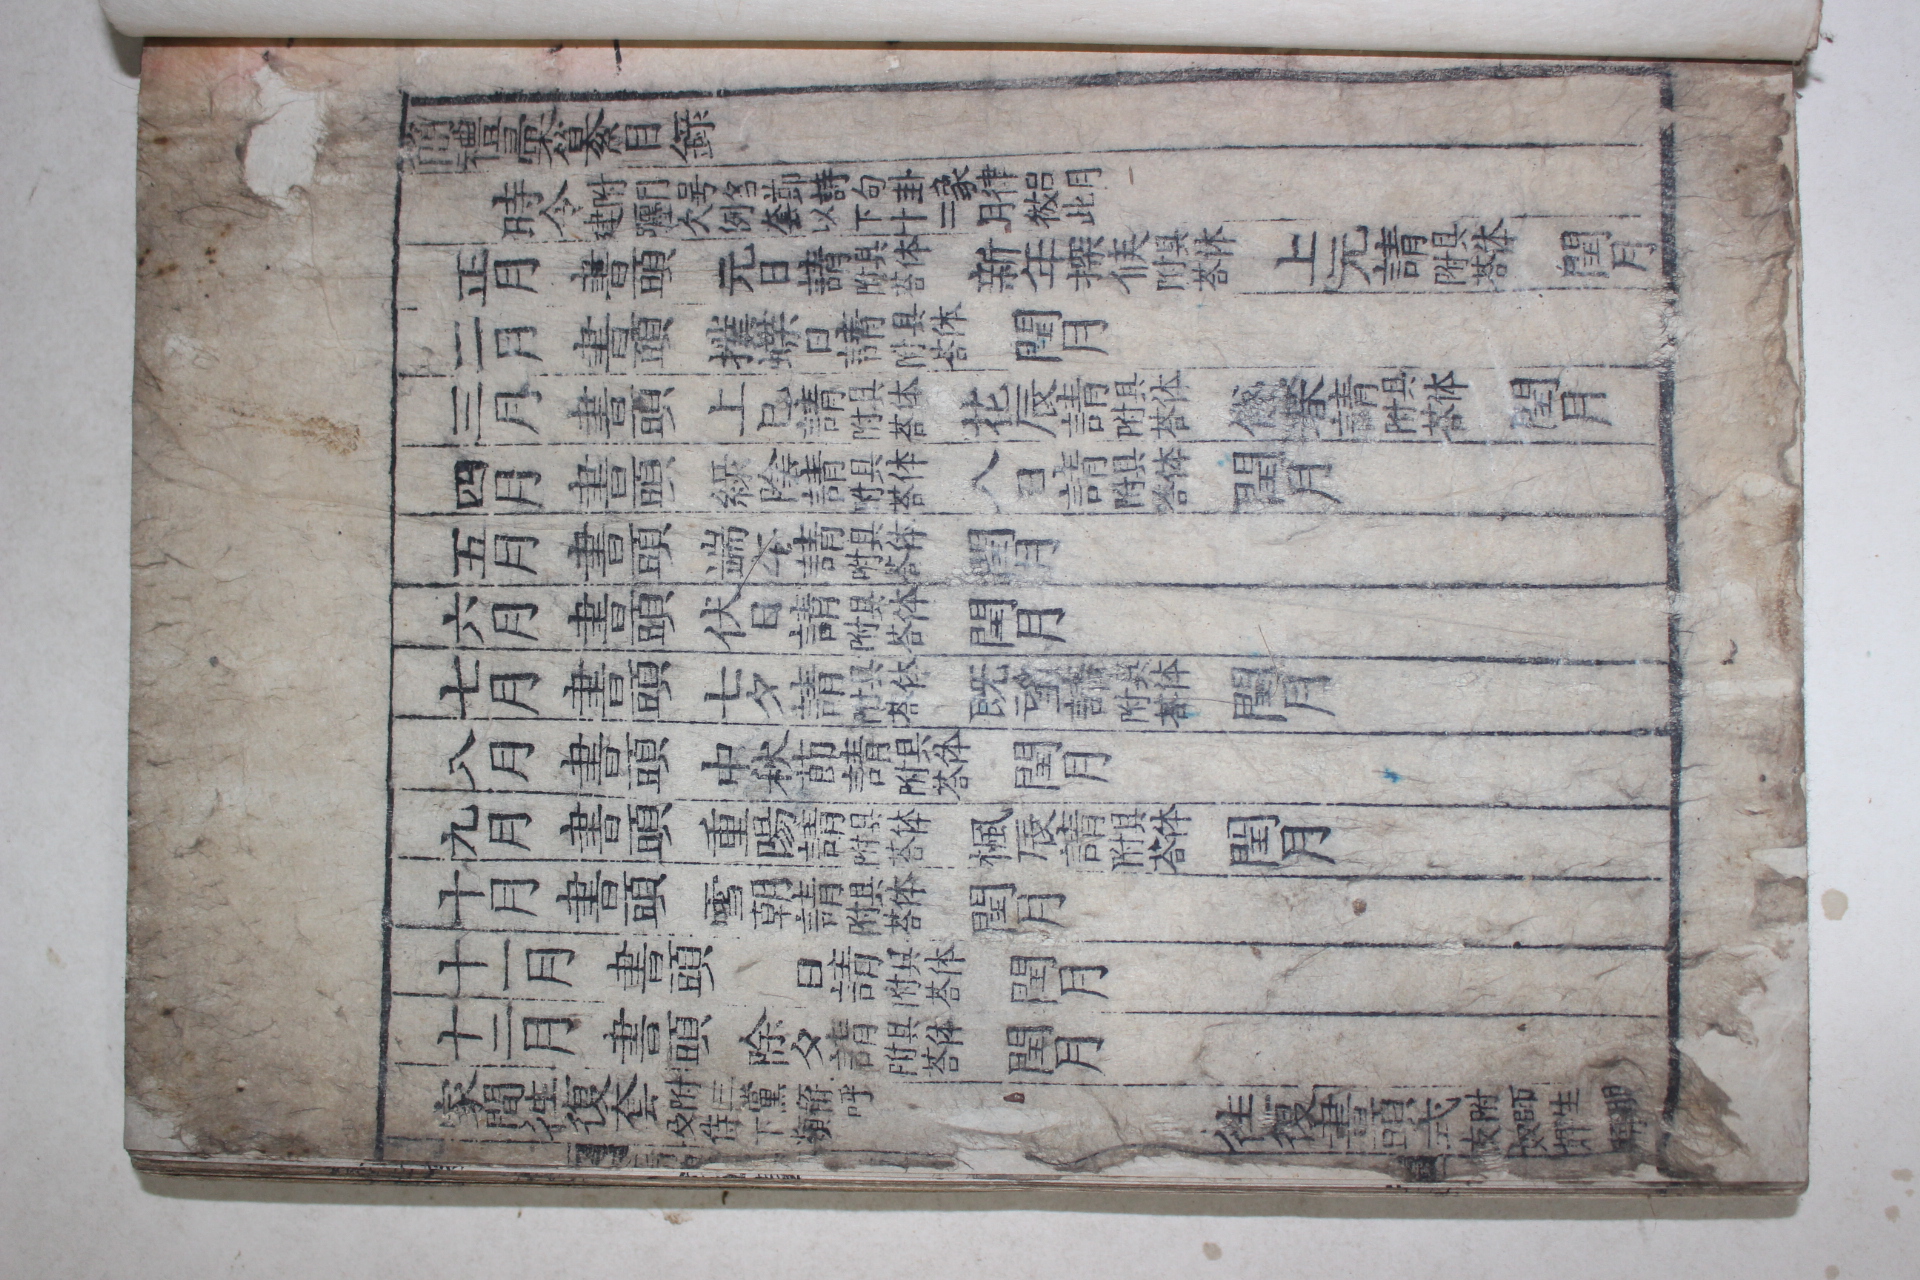 簡禮彙纂目錄
時令附門号名節詩句卦象律呂月建躔欠例套以下十二月倣此
正月 書頭 元日請具体附荅 新年探候具体附荅 上元請具体附荅 閏月
二月 書頭 撲蝶日請具体附荅 閏月
三月 書頭 上巳請具体附荅 花辰請具体附荅 餞春請具体附荅 閏月
四月 書頭 綠陰請具体附荅 八日請具体附荅 閏月
五月 書頭 端午請具体附荅 閏月
六月 書頭 伏日請具体附荅 閏月
七月 書頭 七夕請具体附荅 既望請具体附荅 閏月
八月 書頭 中秋節請具体附荅 閏月
九月 書頭 重陽請具体附荅 楓辰請具体附荅 閏月
十月 書頭 雪朝請具体附荅 閏月
十一月 書頭 日請具体附荅 閏月
十二月 書頭 除夕請具体附荅 閏月
家間往復套附三黨称呼及侍下類 往復書頭式附師生朋友奴婢